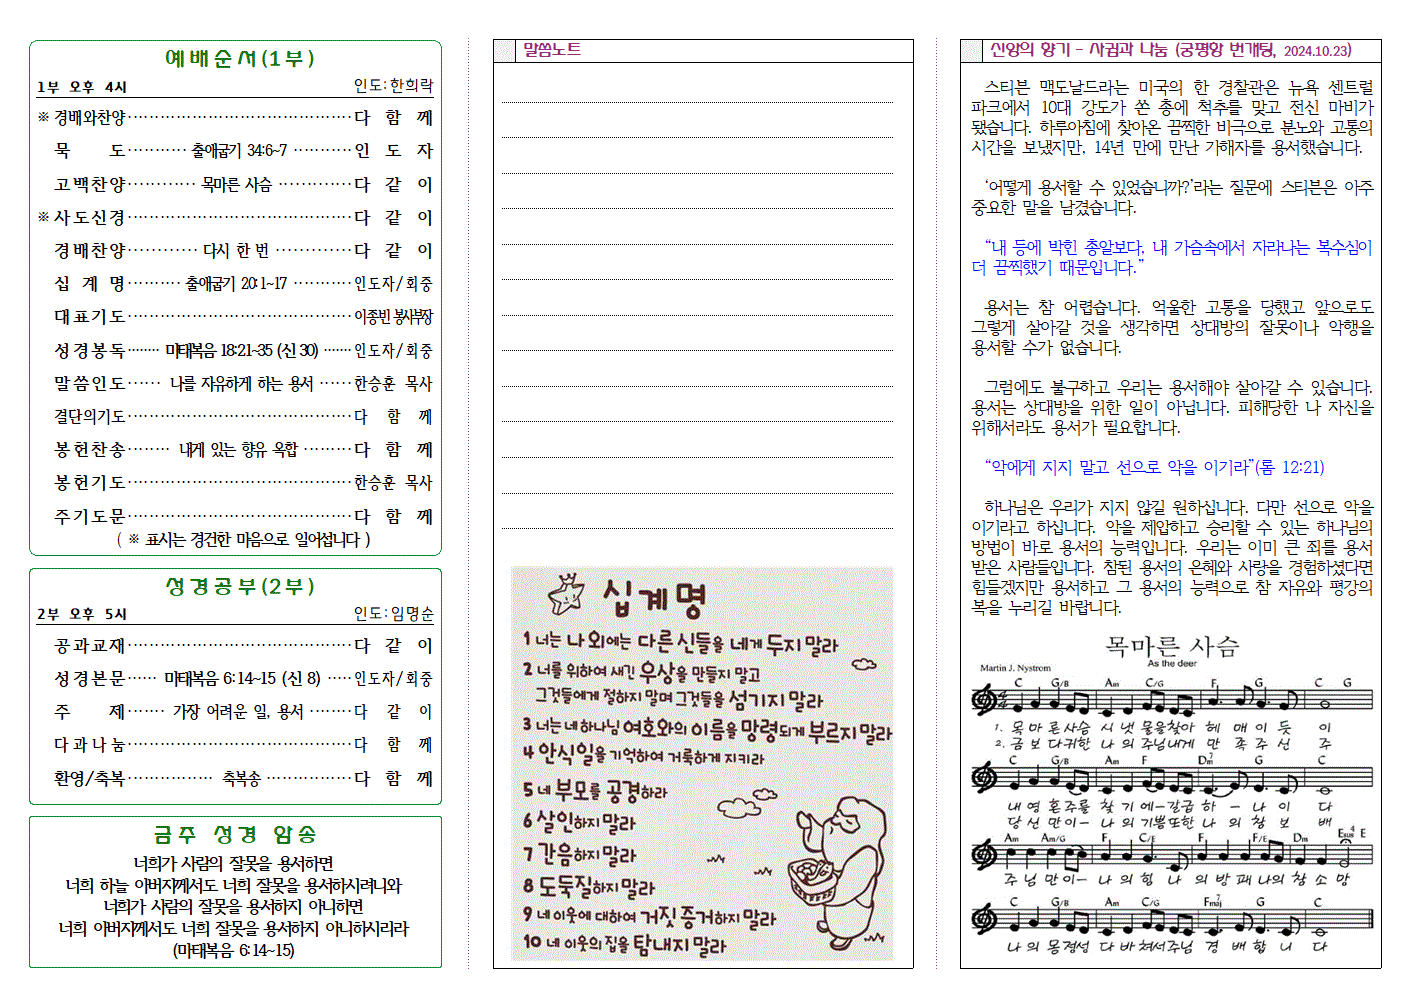 예배순서(1부)
1부 오후 4시 인도:한희락
※ 경배와찬양 다 함 께
묵 도 출애굽기 34:6~7 인 도 자
고백찬양 목마른 사슴 다 같 이
※ 사도신경 다 같 이
경배찬양 다시 한 번 다 같 이
십 계 명 출애굽기 20:1~17 인도자/회중
대표기도 이종빈 봉사부장
성경봉독 마태복음 18:21~35 (신 30) 인도자/회중
말씀인도 나를 자유하게 하는 용서 한승훈 목사
결단의기도 다 함 께
봉헌찬송 내게 있는 향유 옥합 다 함 께
봉헌기도 한승훈 목사
주기도문 다 함 께
( ※ 표시는 경건한 마음으로 일어섭니다 )
성경공부(2부)
2부 오후 5시 인도:임명순
공과교재 다 같 이
성경본문 마태복음 6:14~15 (신 8) 인도자/회중
주 제 가장 어려운 일, 용서 다 같 이
다과나눔 다 함 께
환영/축복 축복송 다 함 께
금주 성경 암송
너희가 사람의 잘못을 용서하면
너희 하늘 아버지께서도 너희 잘못을 용서하시려니와
너희가 사람의 잘못을 용서하지 아니하면
너희 아버지께서도 너희 잘못을 용서하지 아니하시리라
(마태복음 6:14~15)
말씀노트
십계명
1 너는 나 외에는 다른 신들을 네게 두지 말라
2 너를 위하여 새긴 우상을 만들지 말고
그것들에게 절하지 말며 그것들을 섬기지 말라
3 너는 네 하나님 여호와의 이름을 망령되게 부르지 말라
4 안식일을 기억하여 거룩하게 지키라
5 네 부모를 공경하라
6 살인하지 말라
7 간음하지 말라
8 도둑질하지 말라
9 네 이웃에 대하여 거짓 증거하지 말라
10 네 이웃의 집을 탐내지 말라
신앙의 향기 - 사귐과 나눔 (궁평항 번개팅, 2024.10.23)
스티븐 맥도날드라는 미국의 한 경찰관은 뉴욕 센트럴
파크에서 10대 강도가 쏜 총에 척추를 맞고 전신 마비가
됐습니다. 하루아침에 찾아온 끔찍한 비극으로 분노와 고통의
시간을 보냈지만, 14년 만에 만난 가해자를 용서했습니다.
‘어떻게 용서할 수 있었습니까?’라는 질문에 스티븐은 아주
중요한 말을 남겼습니다.
“내 등에 박힌 총알보다, 내 가슴속에서 자라나는 복수심이
더 끔찍했기 때문입니다.”
용서는 참 어렵습니다. 억울한 고통을 당했고 앞으로도
그렇게 살아갈 것을 생각하면 상대방의 잘못이나 악행을
용서할 수가 없습니다.
그럼에도 불구하고 우리는 용서해야 살아갈 수 있습니다.
용서는 상대방을 위한 일이 아닙니다. 피해당한 나 자신을
위해서라도 용서가 필요합니다.
“악에게 지지 말고 선으로 악을 이기라”(롬 12:21)
하나님은 우리가 지지 않길 원하십니다. 다만 선으로 악을
이기라고 하십니다. 악을 제압하고 승리할 수 있는 하나님의
방법이 바로 용서의 능력입니다. 우리는 이미 큰 죄를 용서
받은 사람들입니다. 참된 용서의 은혜와 사랑을 경험하셨다면
힘들겠지만 용서하고 그 용서의 능력으로 참 자유와 평강의
복을 누리길 바랍니다.
목마른 사슴
As the deer
Martin J. Nystrom
C G/B Am C/G F G C G
1. 목 마 른 사슴 시 냇 물을찾아 헤 매 이 듯 이
2. 금 보 다귀한 나 의 주님내게 만 족 주 신 주
C G/B Am F Dm7 G C
내 영 혼 주를 찾 기 에-갈급 하 - 나 이 다
당 신 만이- 나 의 기쁨또한 나 의 참 보 배
Am Am/G F C F F/E Dm Esus4 E
주 님 만 이- 나 의 힘 나 의 방 패 나의 참 소 망
C G/B Am C/G Fmaj7 G C
나 의 몸 정성 다 바 쳐서주님 경 배 합 니 다